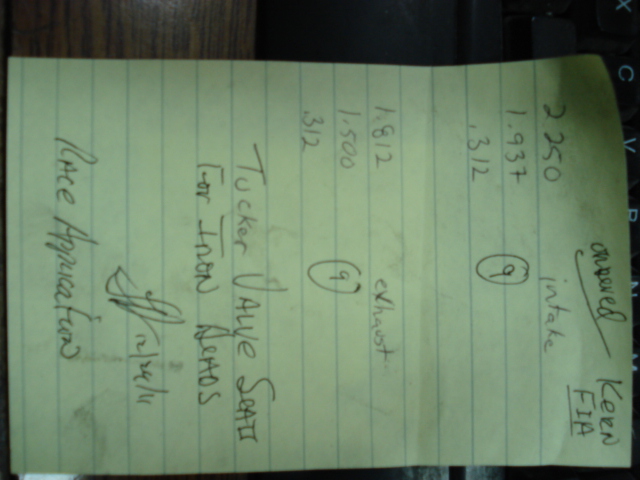 KERN
FIA
2 250 intake
1.937
.312 (9)
1.812 exhaust
1.500 (9)
.312
Tucker VALVE SEATS
For IRON HEADS
12/24/11
RACE Application